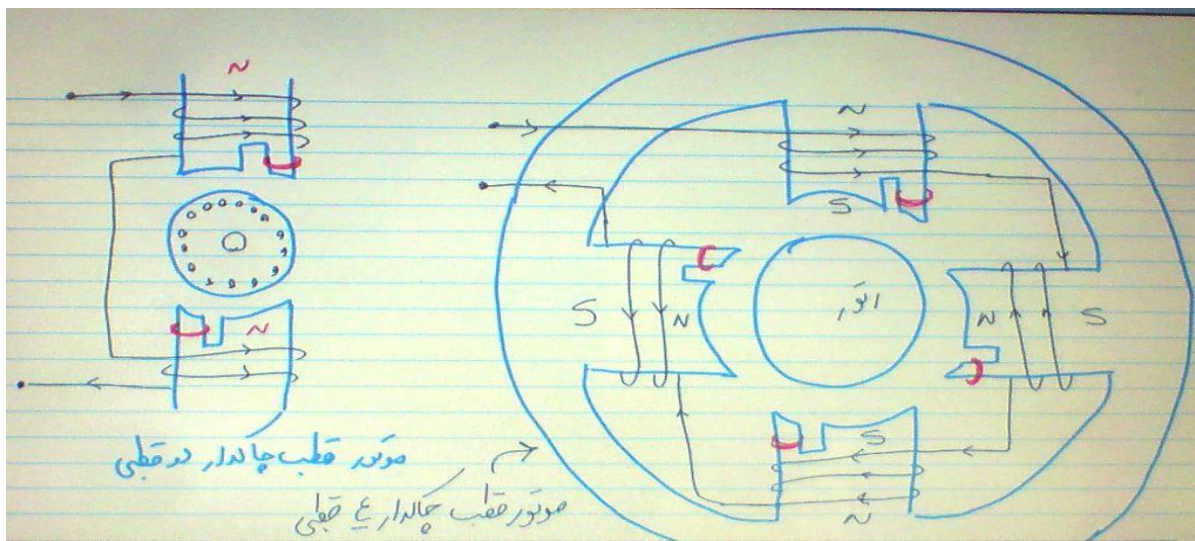 N
N
موتور قطب چاکدار دو قطبی
N
S
S
N
روتور
N
S
S
N
موتور قطب چاکدار ۴ قطبی